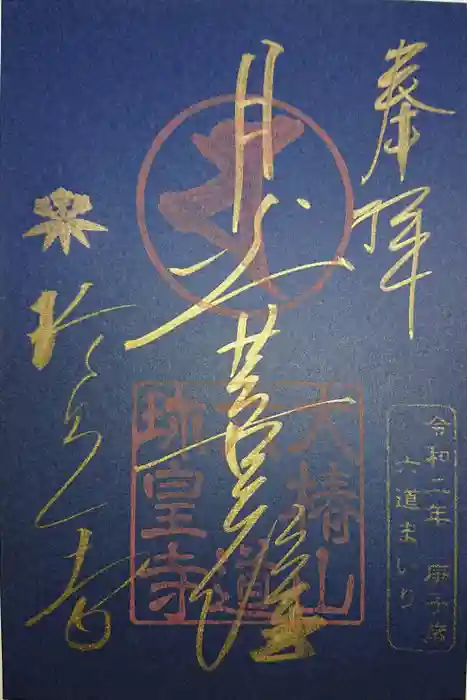 奉拝
令和二年 庚子歳
六道まいり
月光菩薩
大椿山
六道
珍皇寺
珍皇寺